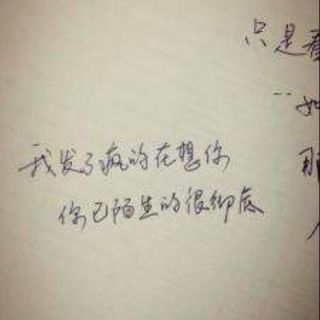 我发了疯的在想你
你已陌生的很彻底
只是看
如
那